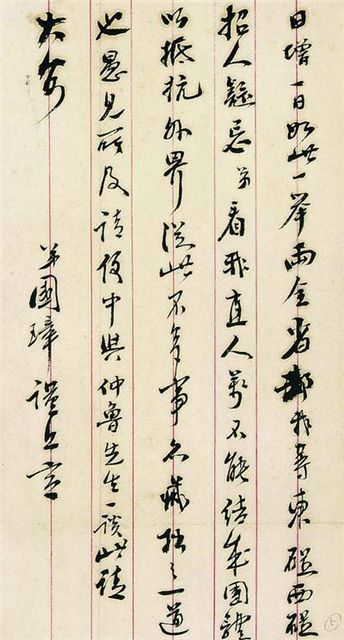 日增一日如此一举两全省却我等东碰西碰
招人疑忌弟看我直人万不能结成团体
以抵抗外界从此不多事亦藏拙之一道
也愚见所及请便中与仲鲁先生一谈此请
大安
弟国璋谨上言